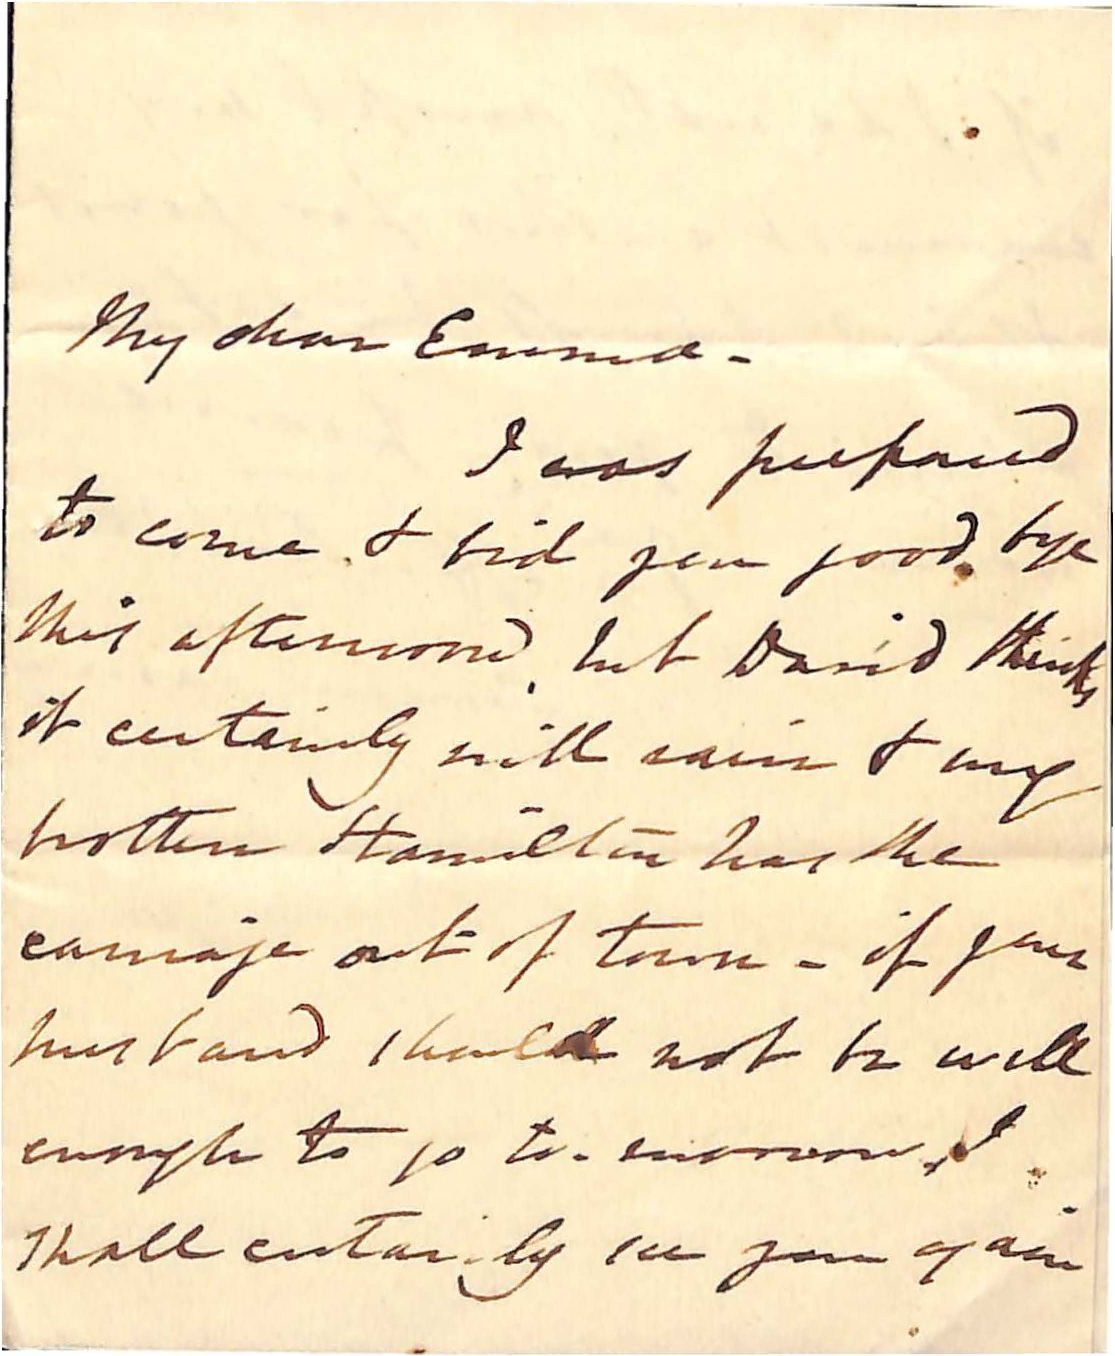 My dear Emma -
I was prepared
to come & bid you good bye
this afternoon, but David thinks
it certainly will rain & my
brother Hamilton has the
carriage out of town - if your
husband should not be well
enough to go to-morrow, I
shall certainly see you again